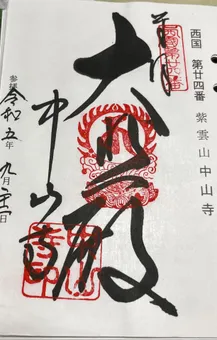 西国 第廿四番 紫雲山中山寺
奉拝
西國第廿四番
大悲殿
中山寺
参拝 令和五年九月二十一日